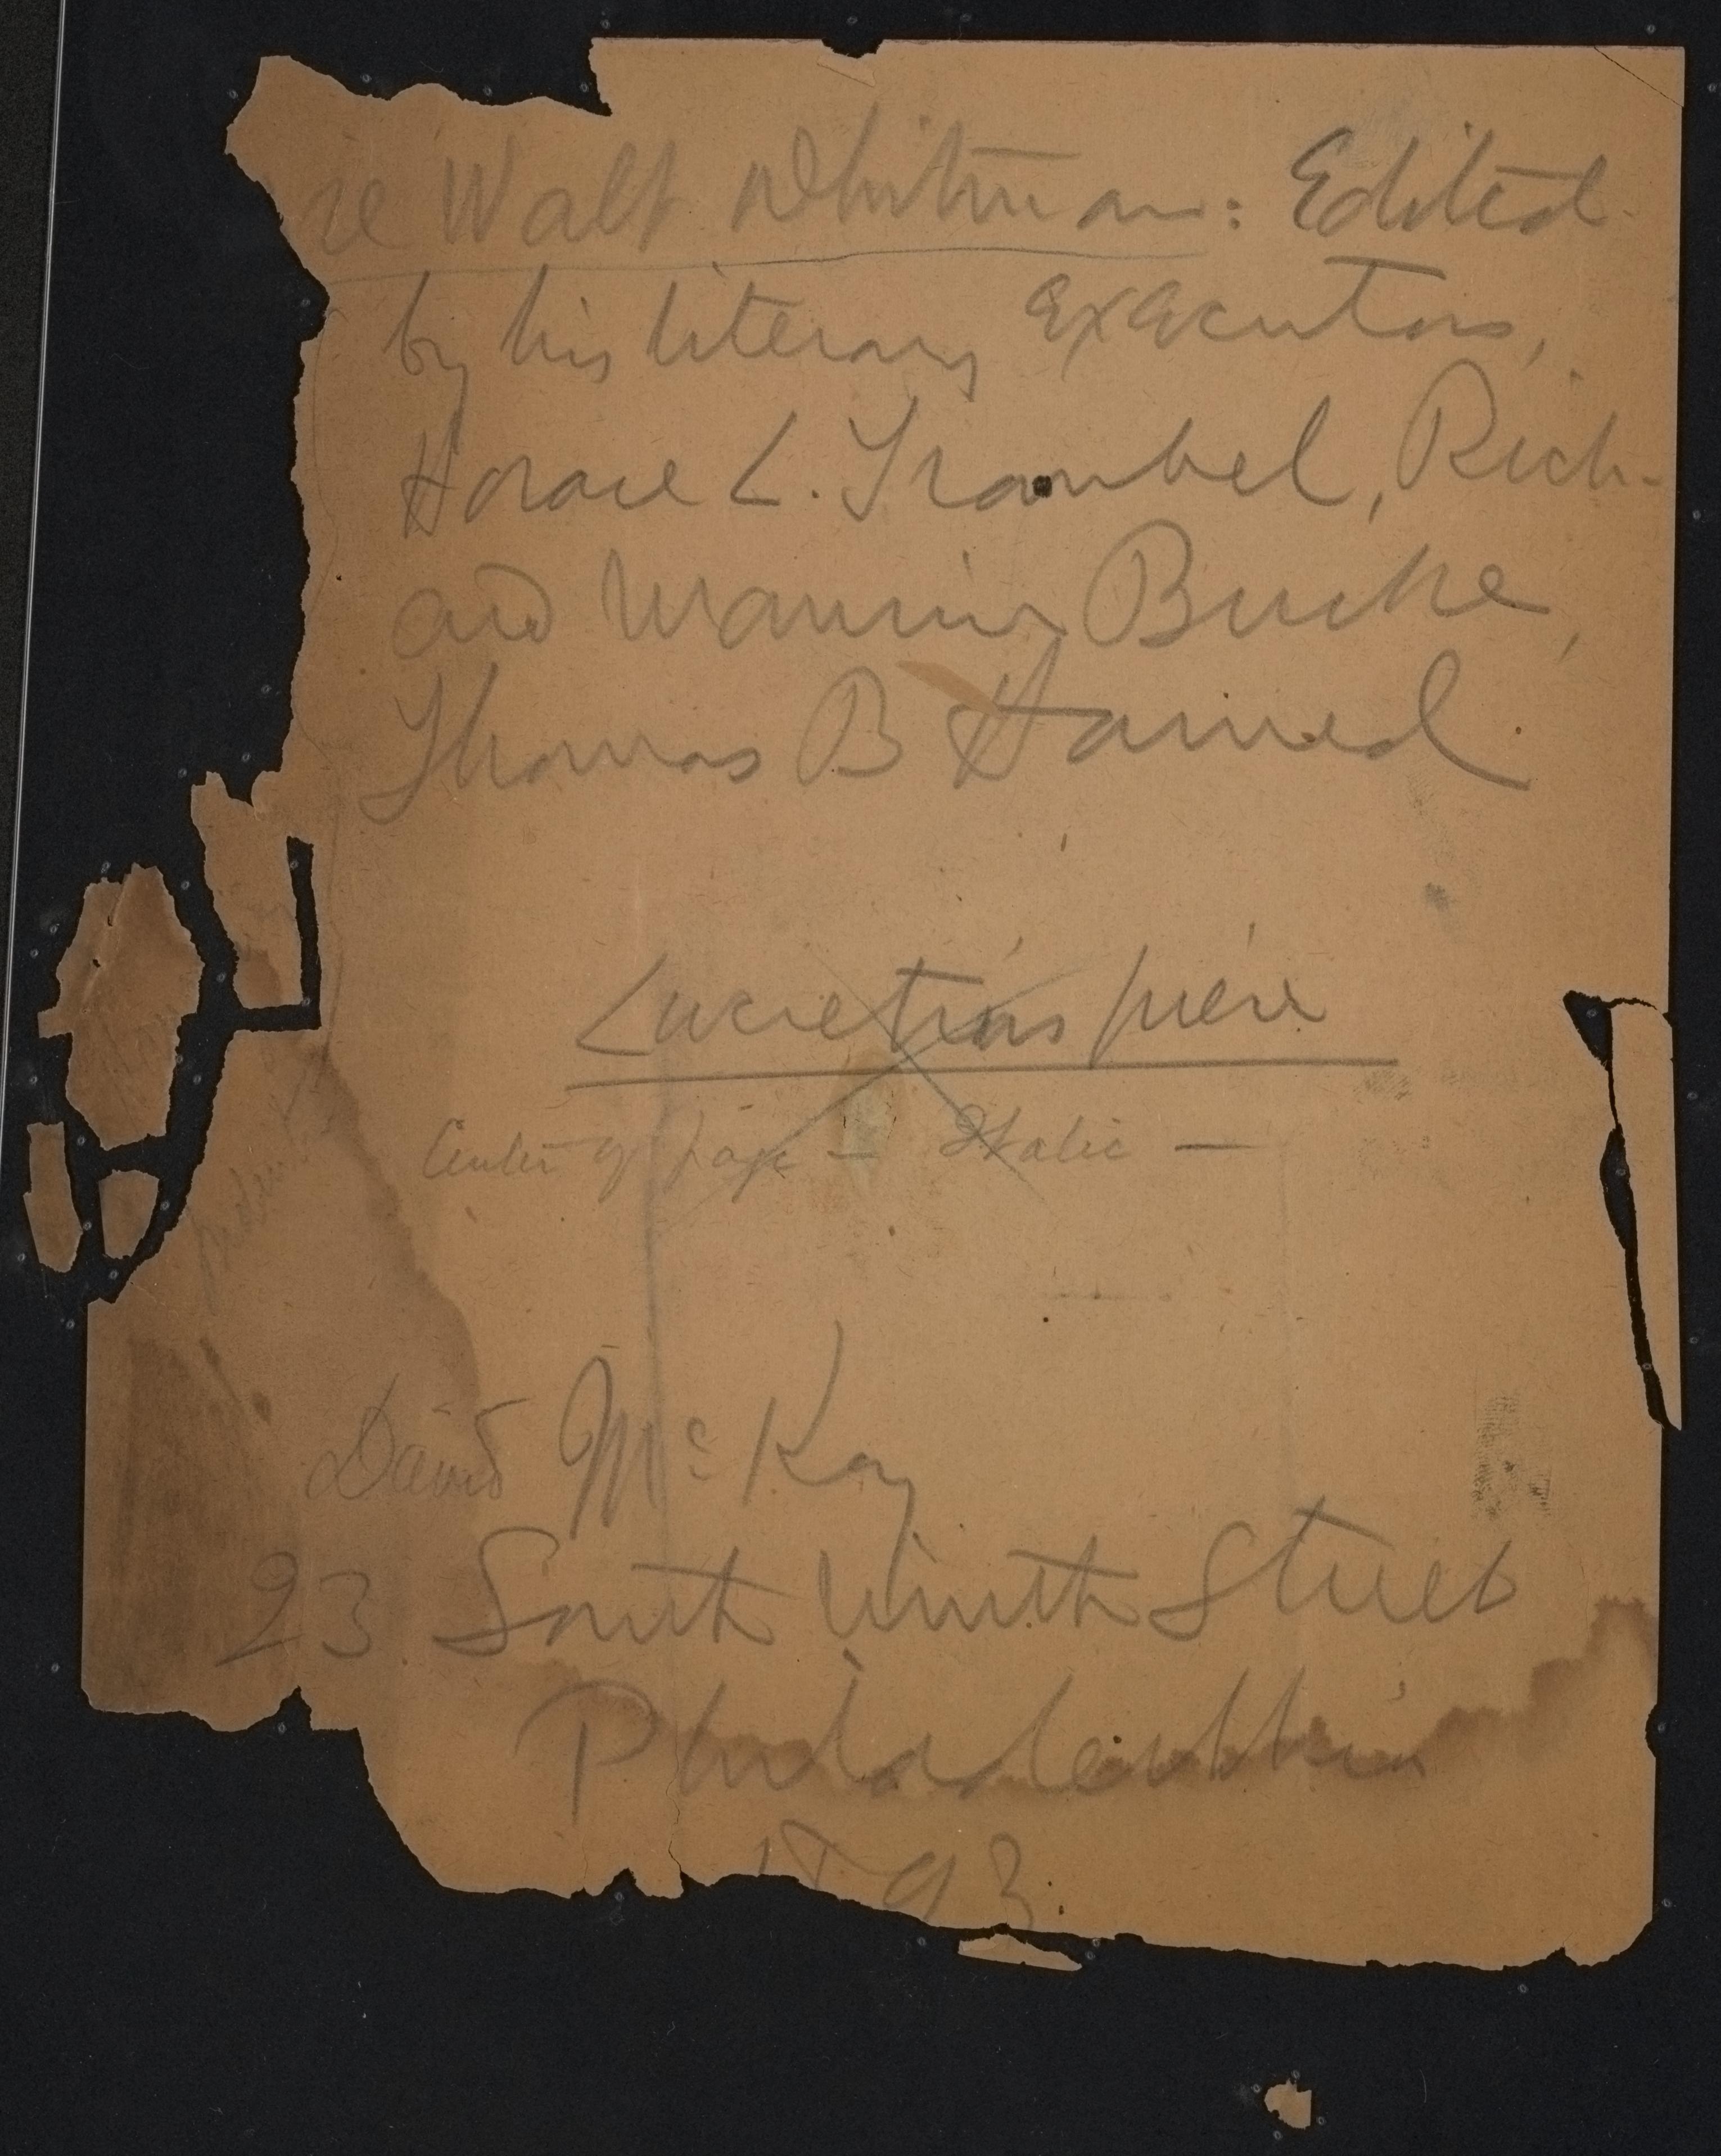 re Walt Whitman: Edited
by his literary Executors,
Horace L. Traubel, Rich-
ard Maurice Bucke,
Thomas B Harned
Lucretius piece
Center of page — Italic —
David McKay
23 South Ninth Street
Philadelphia
1893